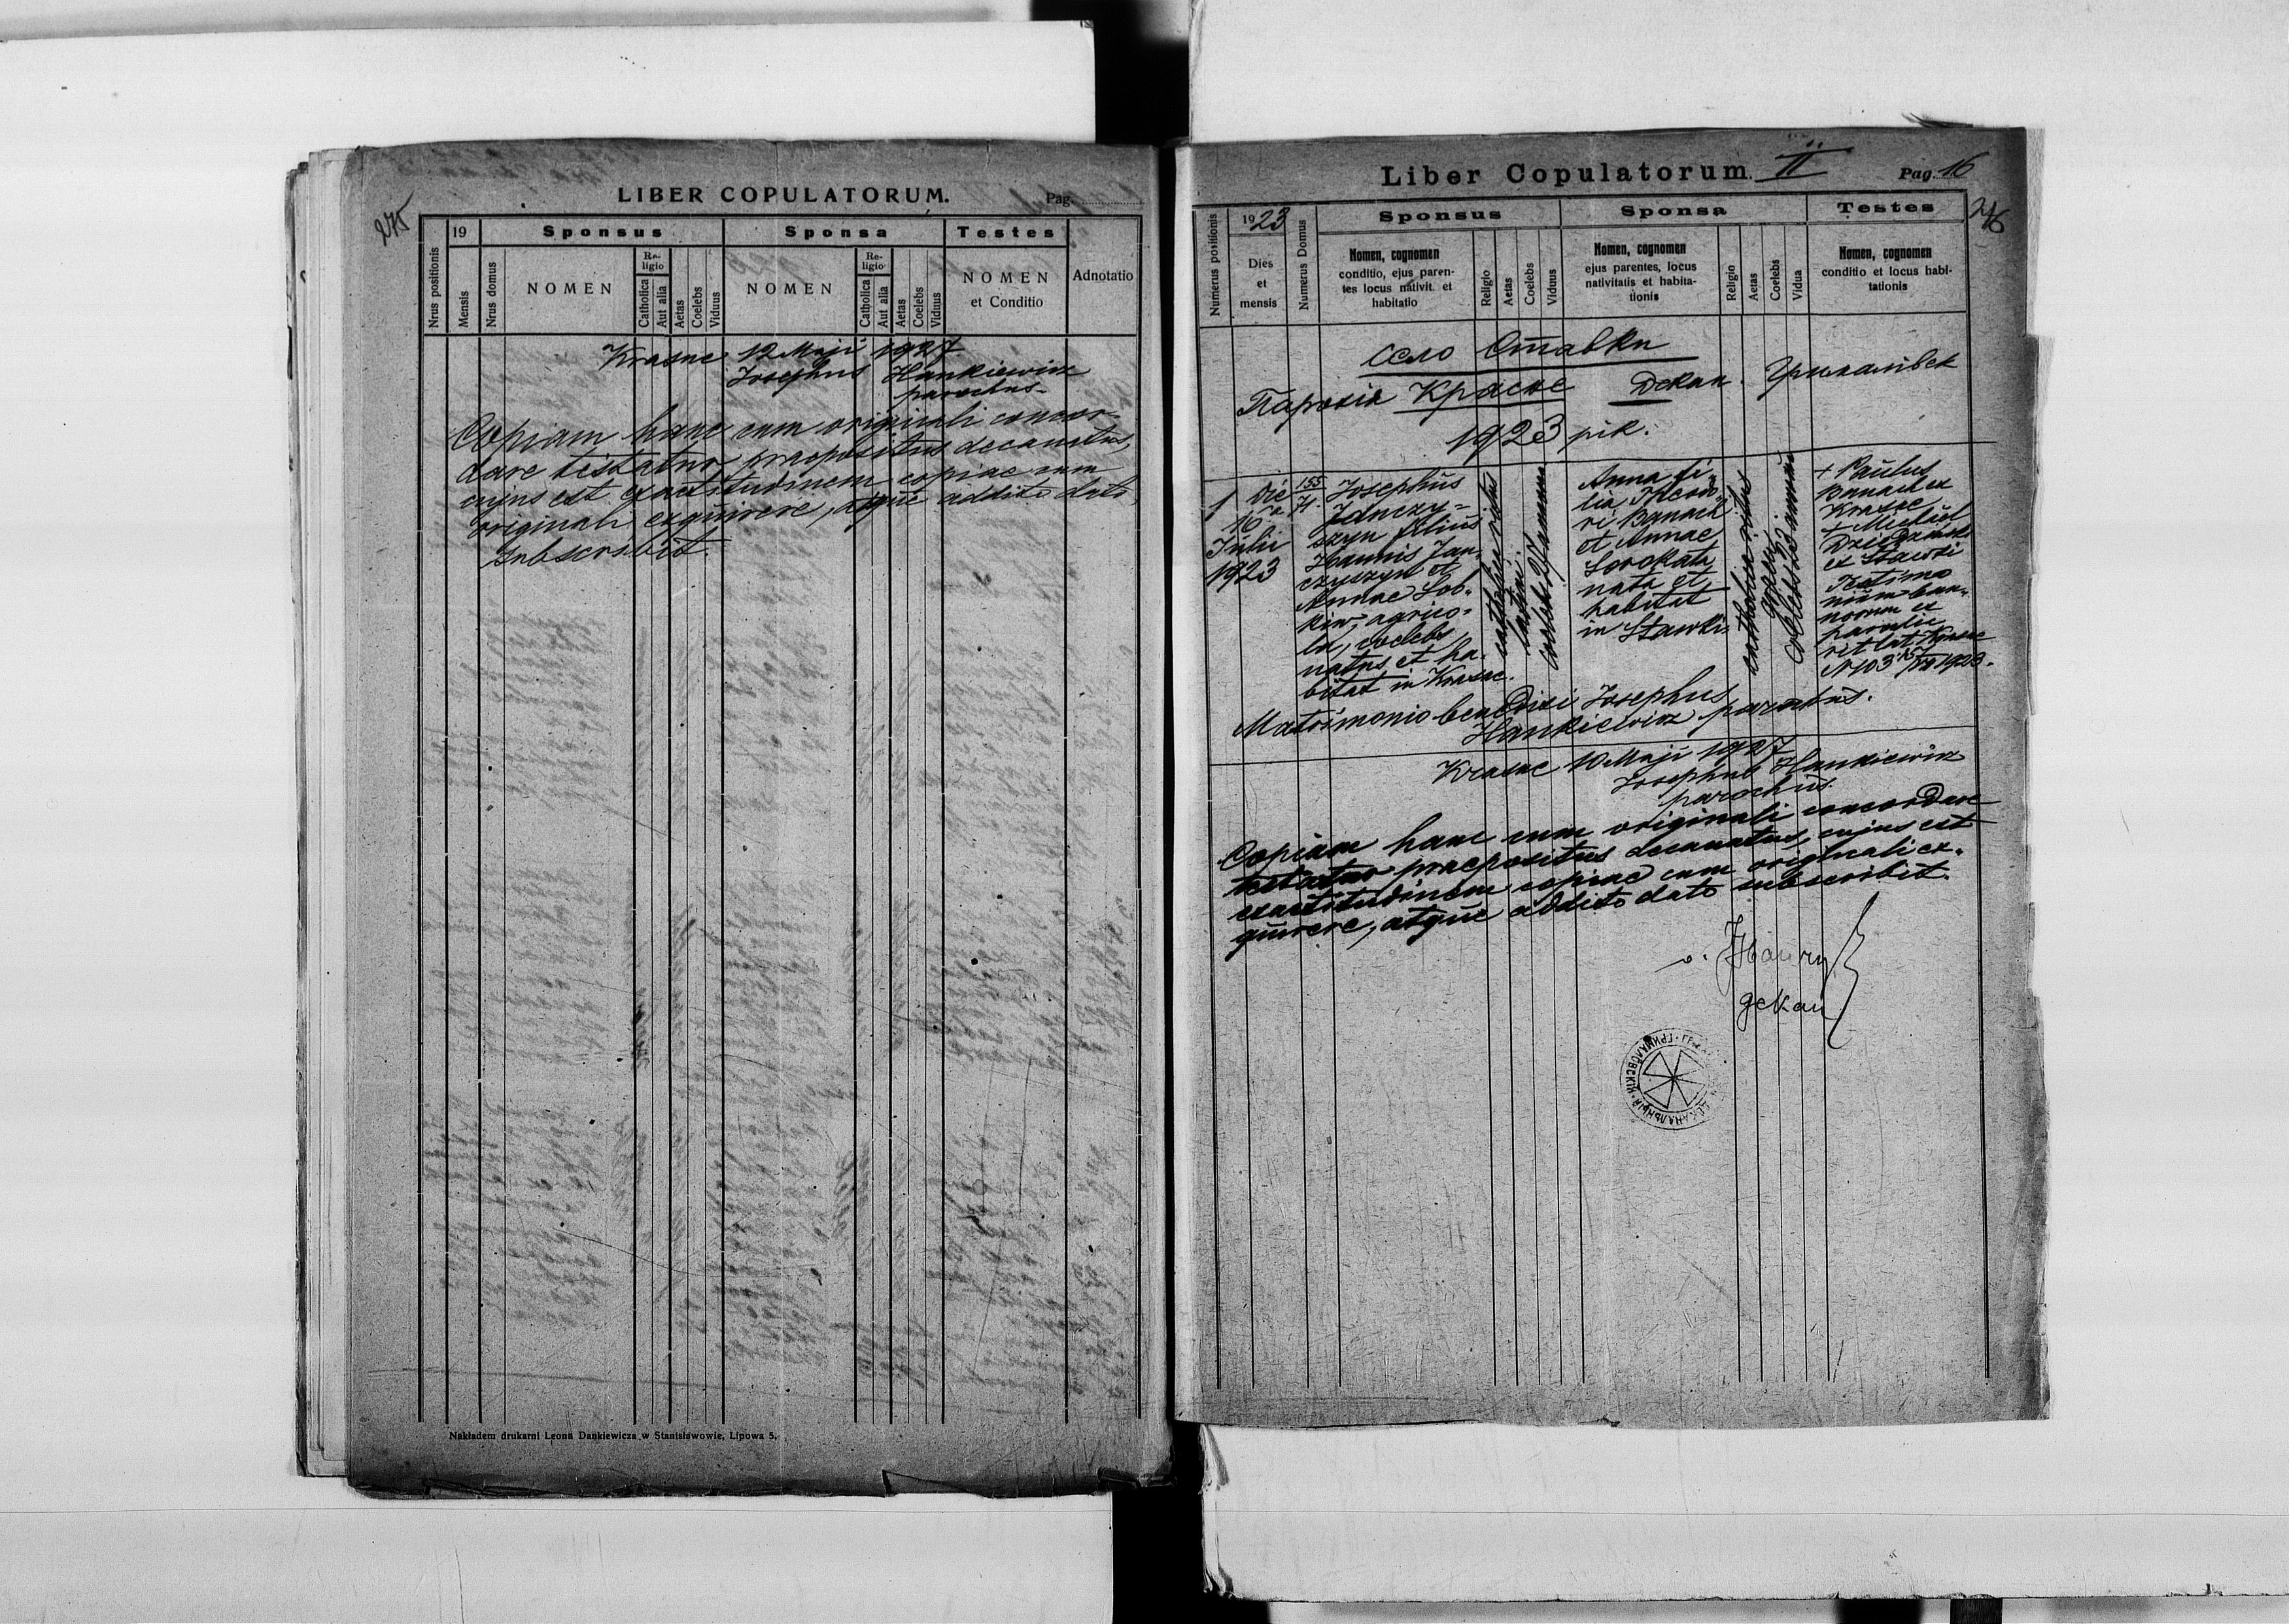 275
LIBER COPULATORUM.
Pag.
Nrus positionis
19
Mensis
Nrus domus
Sponsus
NOMEN
Re-
ligio
Catholica
Aut alia
Aetas
Coelebs
Viduus
Sponsa
NOMEN
Re-
ligio
Catholica
Aut alia
Aetas
Coelebs
Viduus
Testes
NOMEN
et Conditio
Adnotatio
Krasne 12 Maji 1927
Josephus Hankiewicz
parochus
Copiam hanc cum originali concor-
dare testatur praepositus decanatus,
cujus est exactitudinem copiae cum
originali exquirere, atque addito dato
subscribit.
Nakładem drukarni Leona Dankiewicza w Stanisławowie, Lipowa 5.
Liber Copulatorum. II
Pag. 16
276
Numerus positionis
1923
Dies
et
mensis
Numerus Domus
Sponsus
Nomen, cognomen
conditio, ejus paren-
tes locus nativit. et
habitatio
Religio
Aetas
Coelebs
Viduus
Sponsa
Nomen, cognomen
ejus parentes, locus
nativitatis et habita-
tionis
Religio
Aetas
Coelebs
Vidua
Testes
Nomen, cognomen
conditio et locus habi-
tationis
село Ставки
Парохія Красне Декан.
1923 рік.
1
Die
16
Julii
1923
155
71.
Josephus
Janczy-
szyn filius
Joannis Jan-
czyszyn et
Annae Sob-
kiw, agrico-
la, coelebs
natus et ha-
bitat in Krasne.
catholicus ritus
latini
coelebs 27 annorum
Anna fi-
lia Theodo-
ri Banach
et Annae
Sorokata
nata et
habitat
in Stawki
catholica ritus
graeci
coelebs 23 annorum
+ Paulus
Banach ex
Krasne
+ Michael
ex Stawki
Testimo
nium ban-
norum ex
parochia
rit lat Krasne
N 103 1923.
Matrimonio benedixi Josephus
Hankiewicz parochus.
Krasne 10 Maji 1927
Josephus Hankiewicz
parochus
Copiam hanc cum originali concordare
testatur praepositus decanatus, cujus est
exactitudinem copiae cum originali ex-
quirere, atque addito dato subscribit.
о.
декан